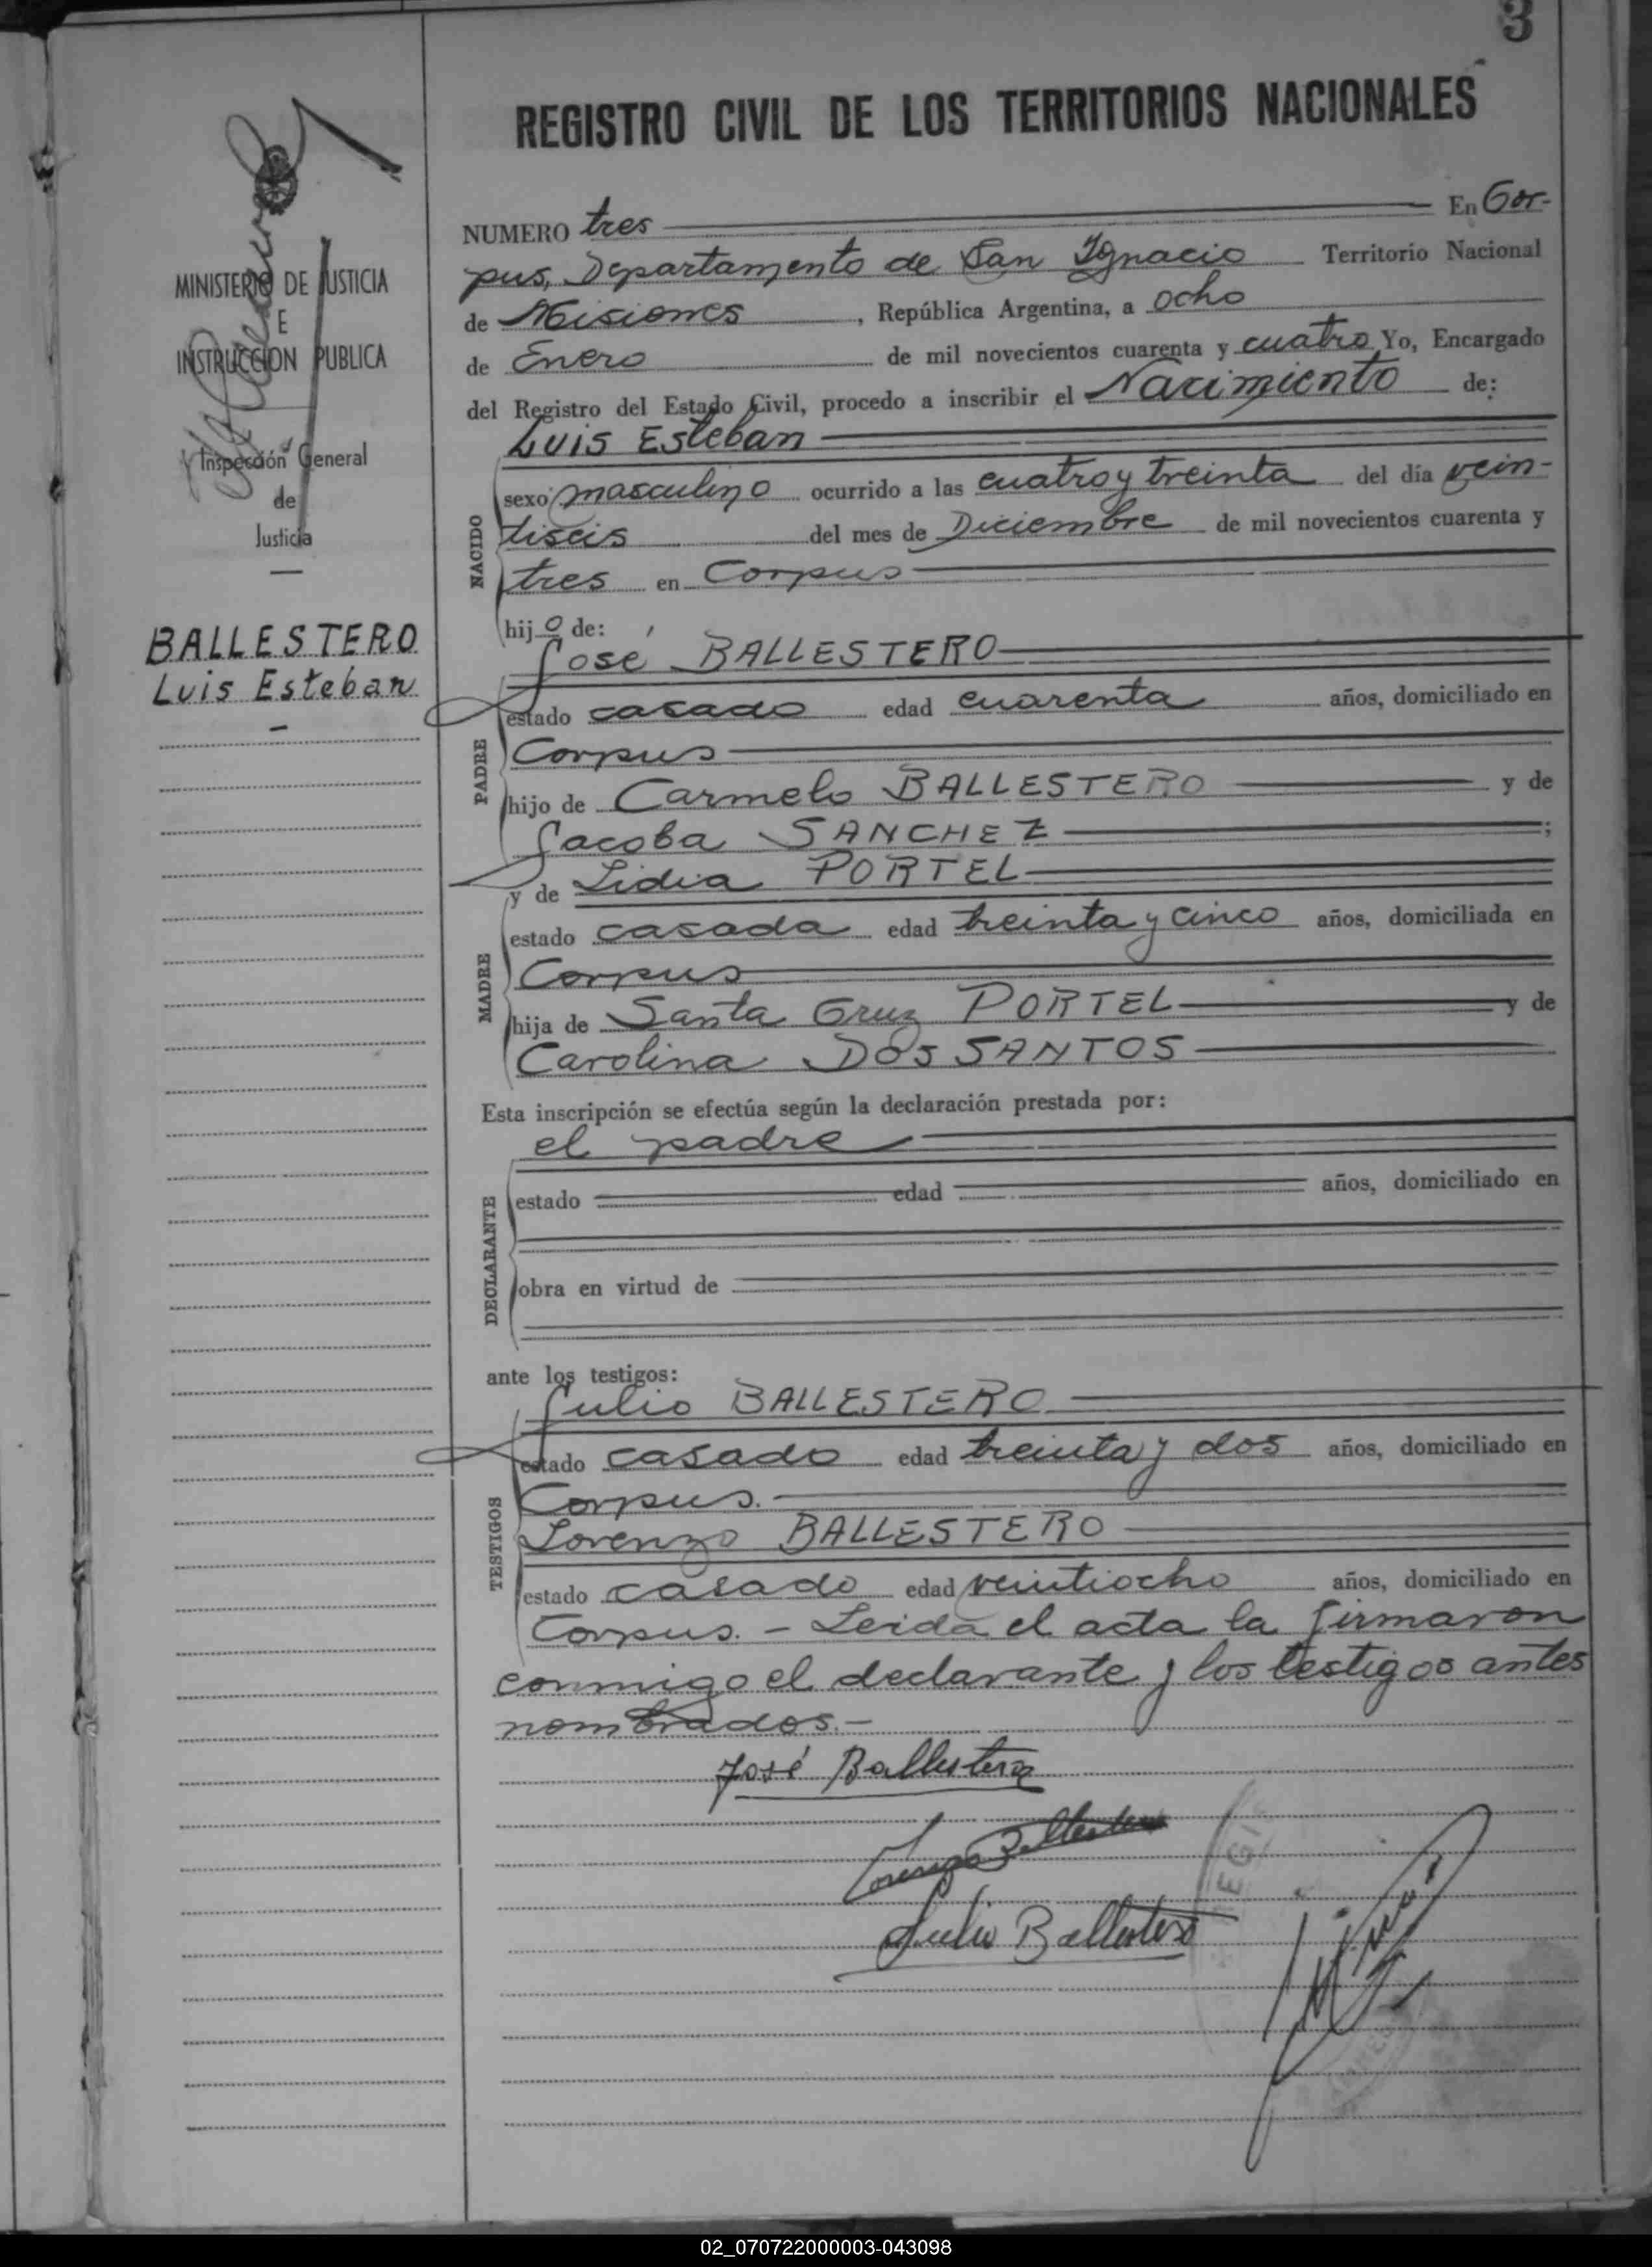 3
REGISTRO CIVIL DE LOS TERRITORIOS NACIONALES
MINISTERIO DE JUSTICIA
E
INSTRUCCION PUBLICA
Inspección General
de
Justicia
BALLESTERO
Luis Esteban
NUMERO tres En Cor-
pus, Departamento de San Ignacio Territorio Nacional
de Misiones, República Argentina, a ocho
de Enero de mil novecientos cuarenta y cuatro Yo, Encargado
del Registro del Estado Civil, procedo a inscribir el Nacimiento de:
Luis Esteban
NACIDO
sexo masculino ocurrido a las cuatro y treinta del día vein-
tiseis del mes de Diciembre de mil novecientos cuarenta y
tres en Corpus
hijo de:
José BALLESTERO
PADRE
estado casado edad cuarenta años, domiciliado en
Corpus
hijo de Carmelo BALLESTERO y de
Jacoba SANCHEZ;
y de Lidia PORTEL
MADRE
estado casada edad treinta y cinco años, domiciliada en
Corpus
hija de Santa Cruz PORTEL y de
Carolina DOS SANTOS
Esta inscripción se efectúa según la declaración prestada por:
el padre
DECLARANTE
estado edad años, domiciliado en
obra en virtud de
ante los testigos:
Julio BALLESTERO
TESTIGOS
estado casado edad treinta y dos años, domiciliado en
Corpus.
Lorenzo BALLESTERO
estado casado edad veintiocho años, domiciliado en
Corpus. - Leida el acta la firmaron
conmigo el declarante y los testigos antes
nombrados.-
José Ballestero
Lorenzo Ballestero
Julio Ballestero
REGI
02_070722000003-043098